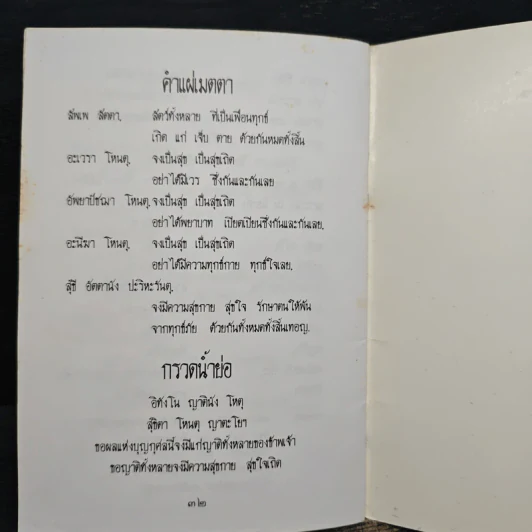 คำแผ่เมตตา
สัพเพ สัตตา, สัตว์ทั้งหลาย ที่เป็นเพื่อนทุกข์
เกิด แก่ เจ็บ ตาย ด้วยกันหมดทั้งสิ้น
อะเวรา โหนตุ, จงเป็นสุข เป็นสุขเถิด
อย่าได้มีเวร ซึ่งกันและกันเลย
อัพยาปัชฌา โหนตุ, จงเป็นสุข เป็นสุขเถิด
อย่าได้พยาบาท เบียดเบียนซึ่งกันและกันเลย,
อะนีฆา โหนตุ, จงเป็นสุข เป็นสุขเถิด
อย่าได้มีความทุกข์กาย ทุกข์ใจเลย,
สุขี อัตตานัง ปะริหะรันตุ,
จงมีความสุขกาย สุขใจ รักษาตนให้พ้น
จากทุกข์ภัย ด้วยกันทั้งหมดทั้งสิ้นเทอญ,
กรวดน้ำย่อ
อิทังโน ญาตินัง โหตุ
สุขิตา โหนตุ ญาตะโยฯ
ขอผลแห่งบุญกุศลนี้จงมีแก่ญาติทั้งหลายของข้าพเจ้า
ขอญาติทั้งหลายจงมีความสุขกาย สุขใจเถิด
๓๒